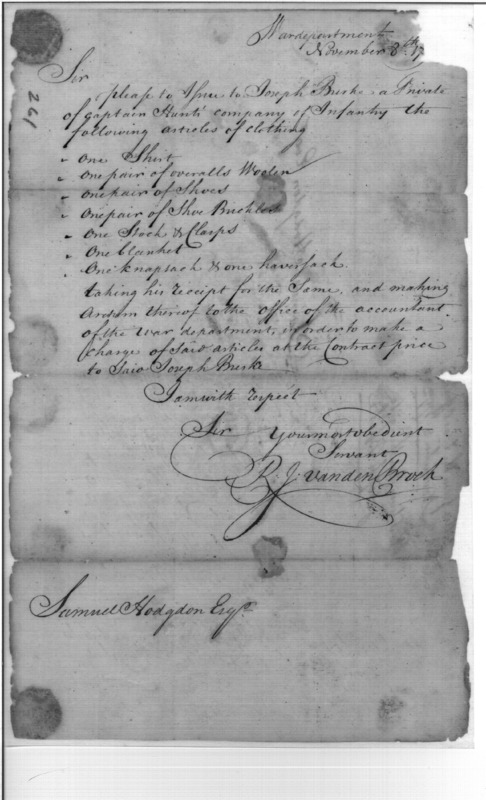 Wardepartment
November 8th 17
Sir
please to Issue to Joseph Burke a Private
of Captain Hunts company of Infantry the
following articles of clothing
" One Shirt
" One pair of overalls Woolen
" one pair of Shoes
" One pair of Shoe Buckles
" One Stock & Clasps
" One blanket
" One knapsack & one haversack.
taking his receipt for the Same, and making
Areturn thereof to the office of the accountant
of the War department, in order to make a
Charge of said articles at the Contract price
to Said Joseph Burke
I am with respect
Sir Your most obedient
Servant
R. J. vanden Broek
Samuel Hodgdon Esqr.
261